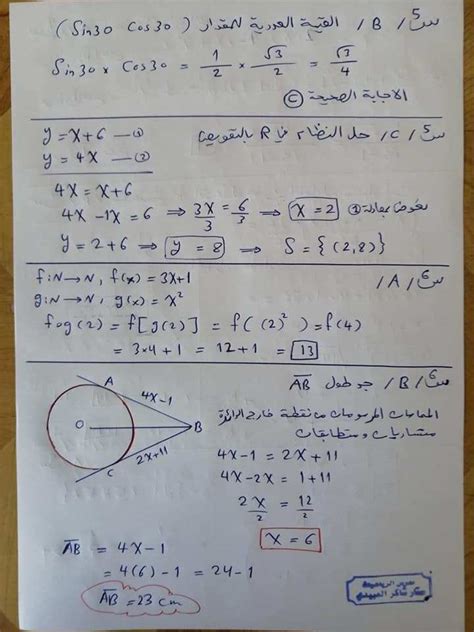 س5 / B / القيمة العددية للمقدار (Sin30 Cos30)
Sin30 × Cos30 = 1/2 × √3/2 = √3/4
الاجابة الصحيحة C
س5 / C / حل النظام في R بالتعويض
y = x+6 —①
y = 4x —②
4x = x+6
4x -1x = 6 ⇒ 3x/3 = 6/3 ⇒ x = 2 نعوض بمعادلة ①
y = 2+6 ⇒ y = 8 ⇒ S = {(2,8)}
س6 / A /
f:N→N, f(x) = 3x+1
g:N→N, g(x) = x²
fog(2) = f[g(2)] = f((2)²) = f(4)
= 3×4+1 = 12+1 = 13
س6 / B / جد طول AB
A
4x-1
O
B
2x+11
C
المماسات المرسومات من نقطة خارج الدائرة
متساويات ومتطابقات
4x-1 = 2x+11
4x-2x = 1+11
2x/2 = 12/2
x = 6
AB = 4x-1
= 4(6)-1 = 24-1
AB = 23 cm